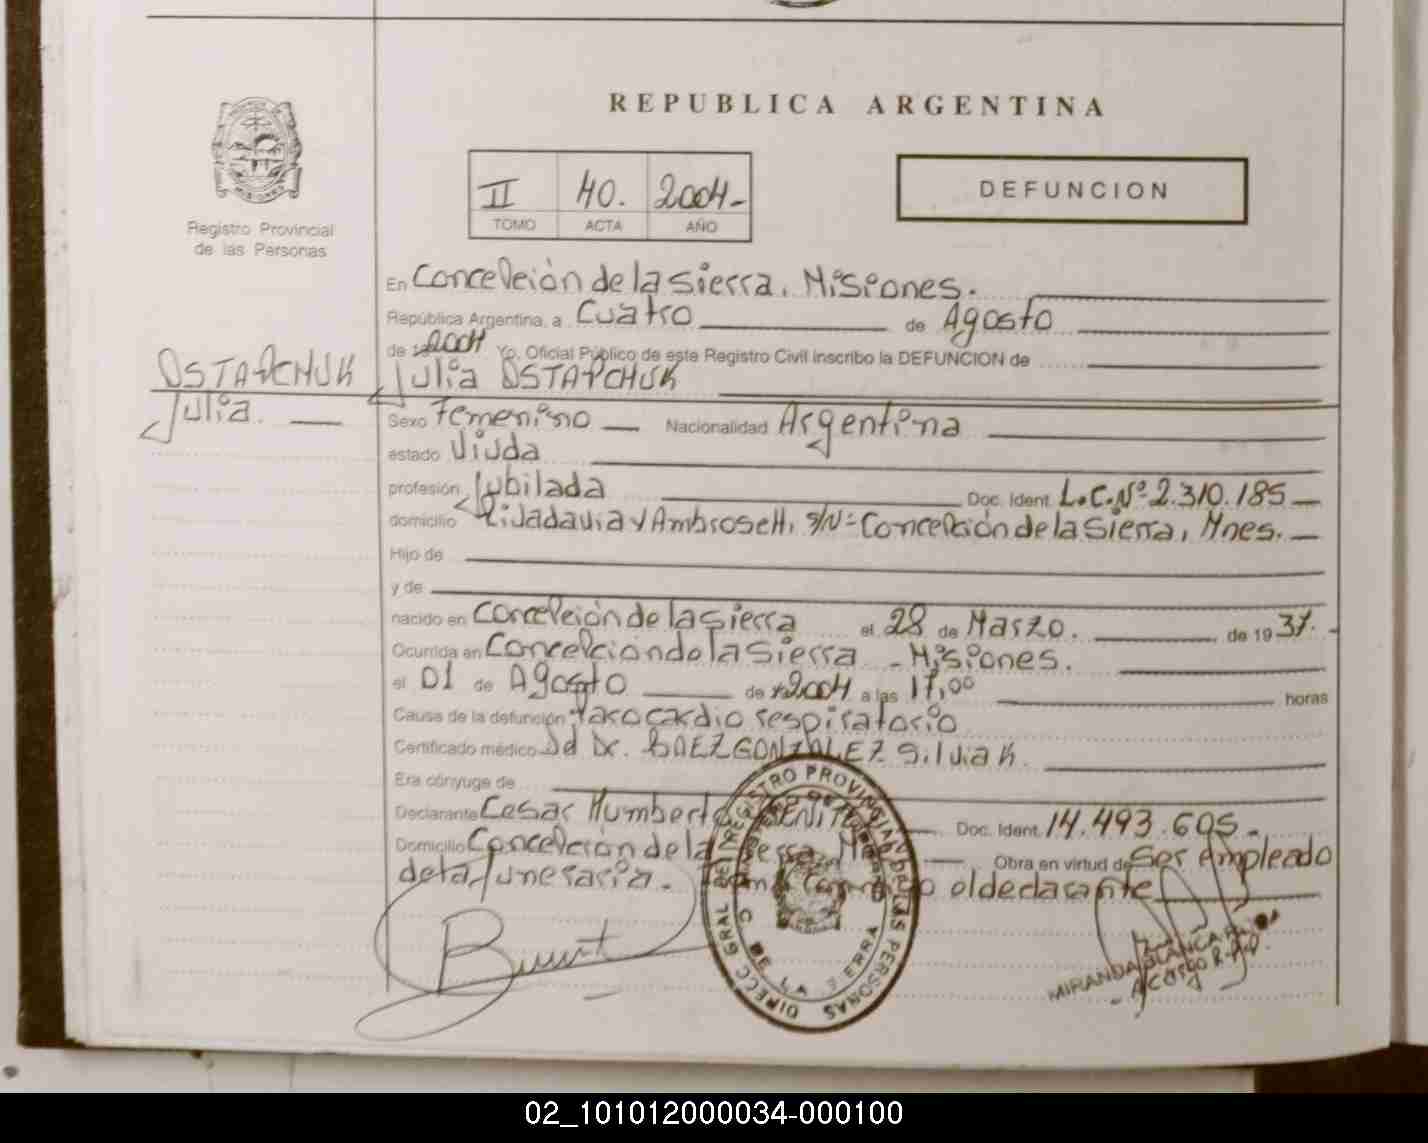 REPUBLICA ARGENTINA
Registro Provincial
de las Personas
II 40. 2004-
TOMO ACTA AÑO
DEFUNCION
OSTAPCHUK
Julia.
En Concepción de la Sierra, Misiones.
República Argentina, a Cuatro de Agosto
de 2004 Yo, Oficial Público de este Registro Civil inscribo la DEFUNCION de
Julia OSTAPCHUK
Sexo Femenino Nacionalidad Argentina
estado Viuda
profesión Jubilada Doc. Ident. L.C.Nº 2.310.185
domicilio Rivadavia y Ambrosetti, S/Nº Concepción de la Sierra, Mnes.
Hijo de
y de
nacido en Concepción de la Sierra el 28 de Marzo. de 19 37.
Ocurrida en Concepción de la Sierra - Misiones.
el 01 de Agosto de 2004 a las 17,00 horas
Causa de la defunción Paro cardio respiratorio
Certificado médico Dr. BAEZ GONZALEZ Silvia K.
Era cónyuge de
Declarante Cesar Humberto BENITEZ Doc. Ident. 14.493.605.-
Domicilio Concepción de la Sierra, Obra en virtud de Ser empleado
de la funeraria. Firma conmigo el declarante
DIRECC GRAL DEL REGISTRO PROVINCIAL DE LAS PERSONAS
C. DE LA SIERRA
MIRANDA BLANCA
A cargo R.P.P.
02_101012000034-000100